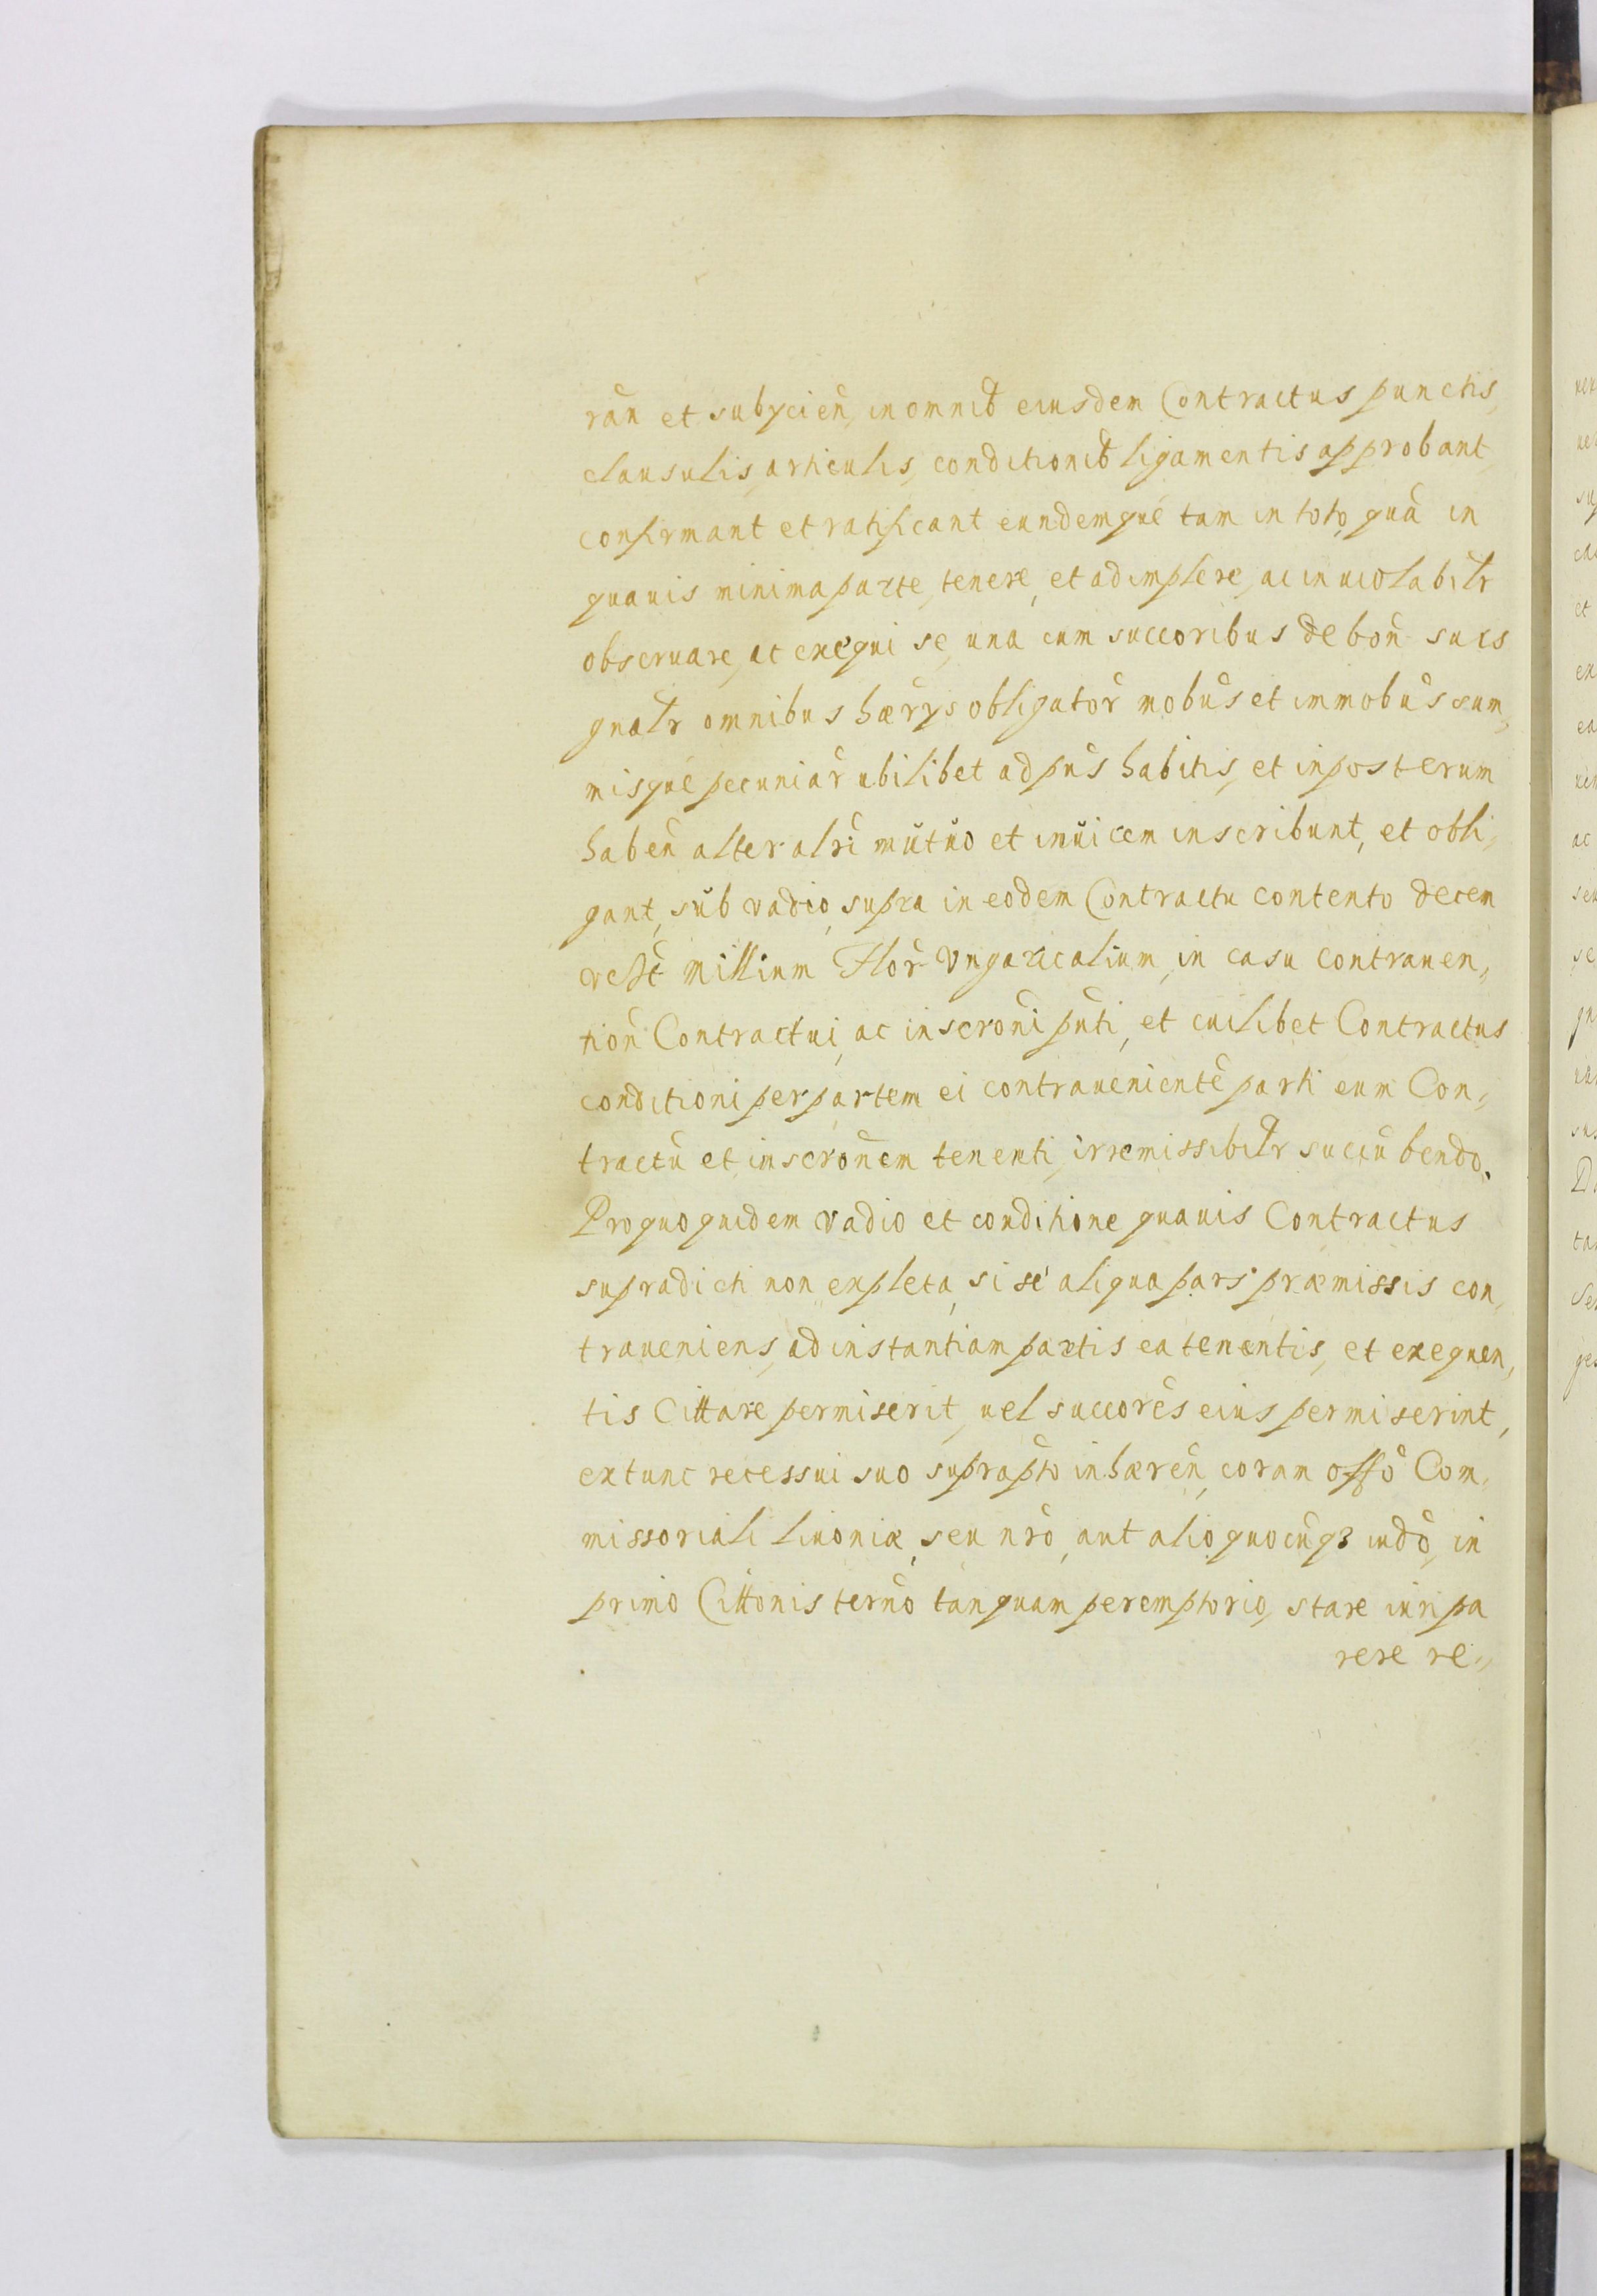 rañ et subycień, in omnib eiusdem Contractus punctis,
clausulis, articulis, conditionib ligamentis approbant,
confirmant et ratificant eundemqué tam in toto, quā in
quauis minima parte, tenere, et adimplere, ac inuiolabilr
obseruare, ac exequi se, una cum succoribus de boñ suis
gnalr omnibus hærrys obligator̃ mobũs et immobũs sum,,
misqué pecuniar̃ ubilibet ad pñs habitis, et inposterum
habeñ alter alr̃i mŭtŭo et inŭicem inscribunt, et obli,,
gant, sŭb vadio, supra in eodem Contractu contento decem
millium Flor̃ Vngaricalium, in casu contrauen,,
tioñ Contractui, ac inscroñi pñti, et cuilibet Contractus
conditioni per partem ei contrauenientẽ parti eum Con,,
tractũ et inscroñem tenenti, irremissibilr succũbendo.
Pro quo quidem vadio et conditione quauis Contractus
supradicti non expleta, si sé aliqua pars præmissis con,,
traueniens, ad instantiam partis ea tenentis, et exequen,,
tis Cittare permiserit, uel succorẽs eius permiserint,
extunc recessui suo suprapto inhæreñ, coram offõ Com,,
missoriali liuoniæ, seu nrõ, aut alio quocũq3 iudõ, in
primo Cittonis termõ tanquam peremptorio, stare iuri pa
rere re,,